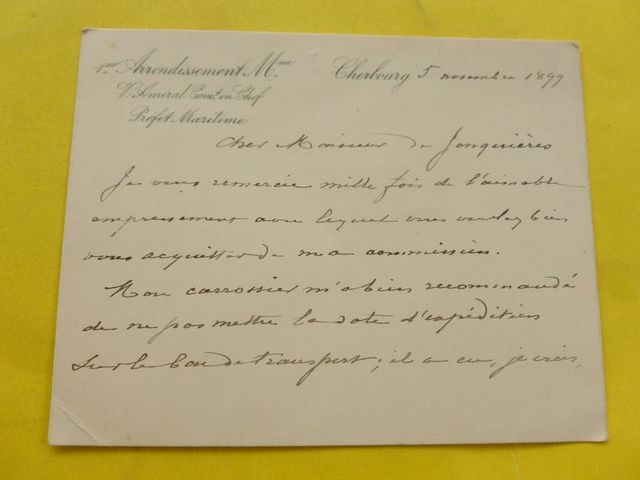 1er Arrondissement Mme
V. Amiral Comt en Chef
Préfet Maritime
Cherbourg 5 novembre 1899
Cher Monsieur de Jonquières
Je vous remercie mille fois de l'aimable
empressement avec lequel vous voulez bien
vous acquitter de ma commission.
Mon carrossier m'a bien recommandé
de ne pas mettre la date d'expédition
sur le bon de transport ; il a eu, je crois,